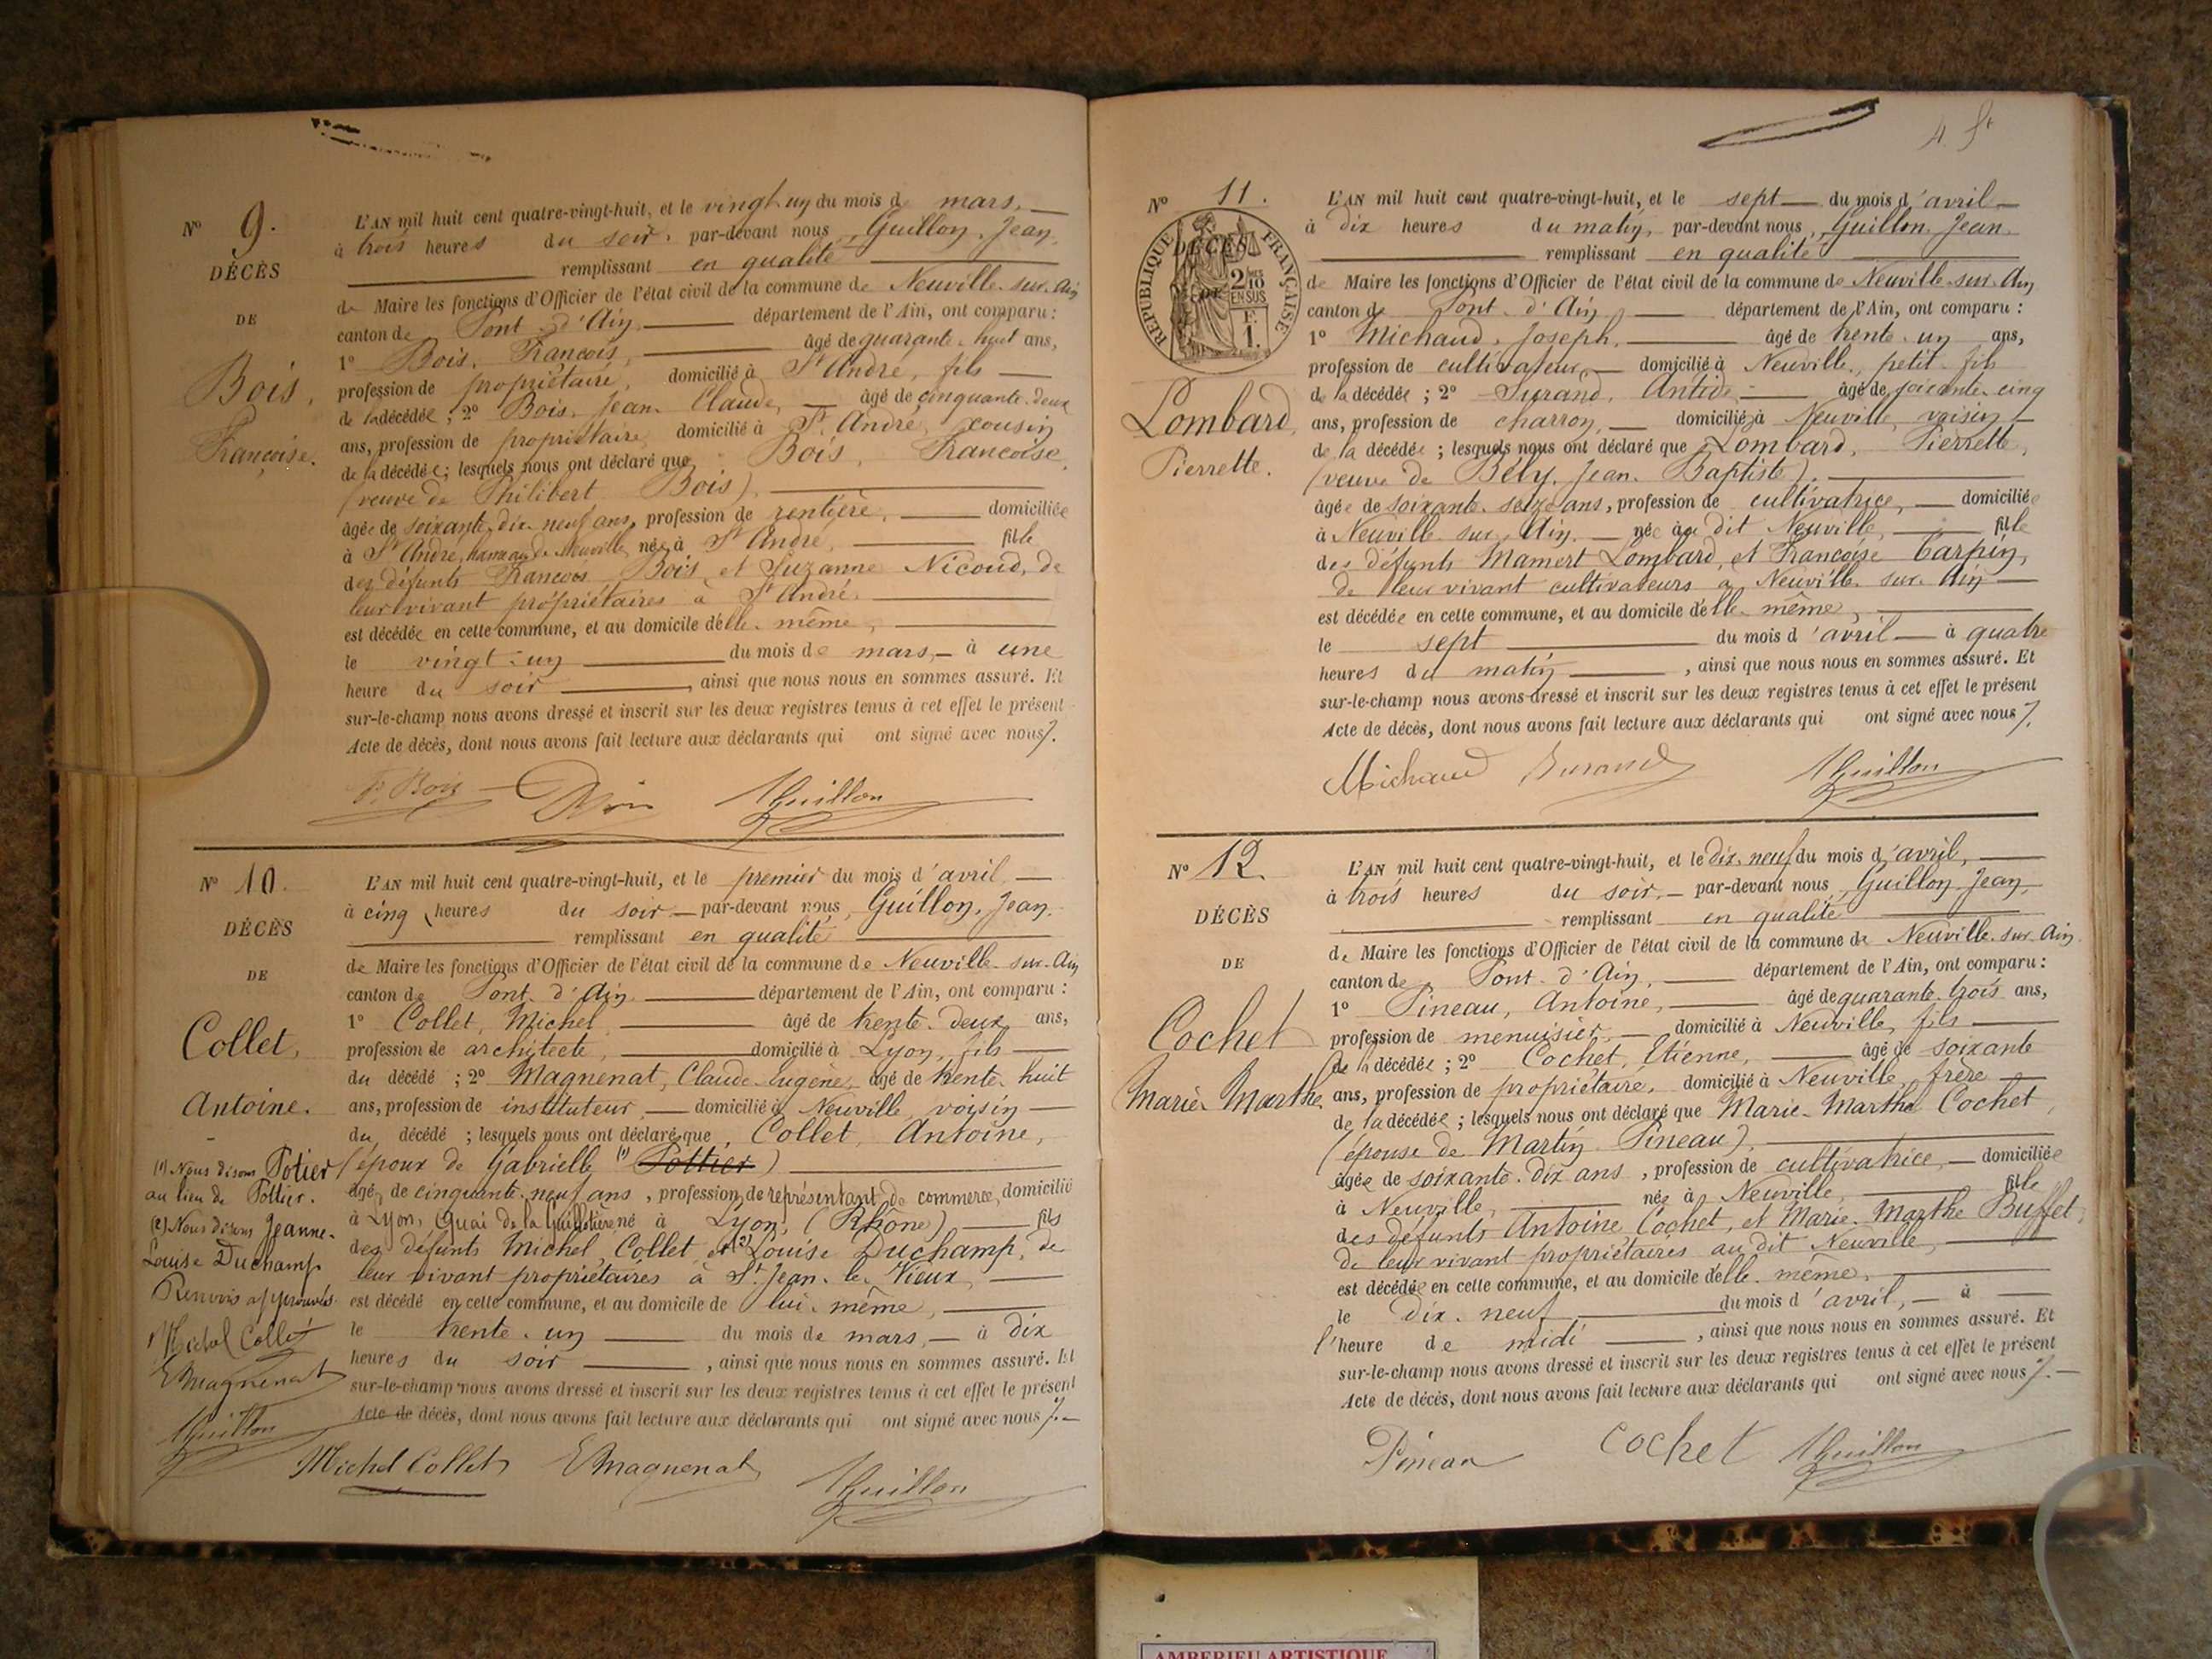 Nº 9.
DÉCÈS
DE
Bois,
Françoise.
L'AN mil huit cent quatre-vingt-huit, et le vingt-un du mois de mars,
à trois heures du soir, par-devant nous, Guillon, Jean,
remplissant en qualité
de Maire les fonctions d'Officier de l'état civil de la commune de Neuville-sur-Ain
canton de Pont-d'Ain, département de l'Ain, ont comparu :
1º Bois, François, âgé de quarante-huit ans,
profession de propriétaire, domicilié à St André, fils
de la décédée ; 2º Bois, Jean-Claude, âgé de cinquante-deux
ans, profession de propriétaire, domicilié à St André, cousin
de la décédée ; lesquels nous ont déclaré que Bois, Françoise,
(veuve de Philibert Bois),
âgée de soixante-dix-neuf ans, profession de rentière, domiciliée
à St André, hameau de Neuville, née à St André, fille
des défunts François Bois et Suzanne Nicoud, de
leur vivant propriétaires à St André,
est décédée en cette commune, et au domicile d'elle-même,
le vingt-un du mois de mars, à une
heure du soir, ainsi que nous nous en sommes assuré. Et
sur-le-champ nous avons dressé et inscrit sur les deux registres tenus à cet effet le présent
Acte de décès, dont nous avons fait lecture aux déclarants qui ont signé avec nous.
F. Bois Guillon
Nº 10.
DÉCÈS
DE
Collet,
Antoine.
(1) Nous disons Potier
au lieu de Pottier.
(2) Nous disons Jeanne-
Louise Duchamp.
Renvois approuvés.
Michel Collet
E Magnenat
Guillon
L'AN mil huit cent quatre-vingt-huit, et le premier du mois d'avril
à cinq heures du soir, par-devant nous, Guillon, Jean,
remplissant en qualité
de Maire les fonctions d'Officier de l'état civil de la commune de Neuville-sur-Ain
canton de Pont-d'Ain département de l'Ain, ont comparu :
1º Collet, Michel, âgé de trente-deux ans,
profession de architecte, domicilié à Lyon, fils
du décédé ; 2º Magnenat, Claude-Eugène, âgé de trente-huit
ans, profession de instituteur, domicilié à Neuville, voisin
du décédé ; lesquels nous ont déclaré que, Collet, Antoine,
(époux de Gabrielle (1) Pottier)
âgé de cinquante-neuf ans, profession de représentant de commerce, domicilié
à Lyon, Quai de la Guillotière né à Lyon, (Rhône), fils
des défunts Michel Collet et (2) Louise Duchamp, de
leur vivant propriétaires à St Jean-le-Vieux,
est décédé en cette commune, et au domicile de lui-même,
le trente-un du mois de mars, à dix
heures du soir, ainsi que nous nous en sommes assuré. Et
sur-le-champ nous avons dressé et inscrit sur les deux registres tenus à cet effet le présent
Acte de décès, dont nous avons fait lecture aux déclarants qui ont signé avec nous.
Michel Collet E Magnenat Guillon
4.
Nº 11.
DÉCÈS
DE
RÉPUBLIQUE FRANÇAISE
2/10 EN SUS
1 F.
Lombard,
Pierrette.
L'AN mil huit cent quatre-vingt-huit, et le sept du mois d'avril
à dix heures du matin, par-devant nous, Guillon, Jean,
remplissant en qualité
de Maire les fonctions d'Officier de l'état civil de la commune de Neuville-sur-Ain
canton de Pont-d'Ain, département de l'Ain, ont comparu :
1º Michaud, Joseph, âgé de trente-un ans,
profession de cultivateur, domicilié à Neuville, petit-fils
de la décédée ; 2º Durand, âgé de soixante-cinq
ans, profession de charron, domicilié à Neuville, voisin
de la décédée ; lesquels nous ont déclaré que Lombard, Pierrette,
(veuve de Bély, Jean-Baptiste),
âgée de soixante-seize ans, profession de cultivatrice, domiciliée
à Neuville-sur-Ain, née au dit Neuville, fille
des défunts Mamert Lombard, et Françoise Carpin,
de leur vivant cultivateurs à Neuville-sur-Ain
est décédée en cette commune, et au domicile d'elle-même,
le sept du mois d'avril à quatre
heures du matin, ainsi que nous nous en sommes assuré. Et
sur-le-champ nous avons dressé et inscrit sur les deux registres tenus à cet effet le présent
Acte de décès, dont nous avons fait lecture aux déclarants qui ont signé avec nous.
Michaud Durand Guillon
Nº 12.
DÉCÈS
DE
Cochet
Marie-Marthe.
L'AN mil huit cent quatre-vingt-huit, et le dix-neuf du mois d'avril,
à trois heures du soir, par-devant nous, Guillon, Jean,
remplissant en qualité
de Maire les fonctions d'Officier de l'état civil de la commune de Neuville-sur-Ain
canton de Pont-d'Ain, département de l'Ain, ont comparu :
1º Pineau, Antoine, âgé de quarante-trois ans,
profession de menuisier, domicilié à Neuville, fils
de la décédée ; 2º Cochet, Etienne, âgé de soixante
ans, profession de propriétaire, domicilié à Neuville, frère
de la décédée ; lesquels nous ont déclaré que Marie-Marthe Cochet,
(épouse de Martin Pineau),
âgée de soixante-dix ans, profession de cultivatrice, domiciliée
à Neuville, née à Neuville, fille
des défunts Antoine Cochet, et Marie-Marthe Buffet,
de leur vivant propriétaires au dit Neuville,
est décédée en cette commune, et au domicile d'elle-même,
le dix-neuf du mois d'avril, à
l'heure de midi, ainsi que nous nous en sommes assuré. Et
sur-le-champ nous avons dressé et inscrit sur les deux registres tenus à cet effet le présent
Acte de décès, dont nous avons fait lecture aux déclarants qui ont signé avec nous.
Pineau Cochet Guillon
AMBERIEU ARTISTIQUE